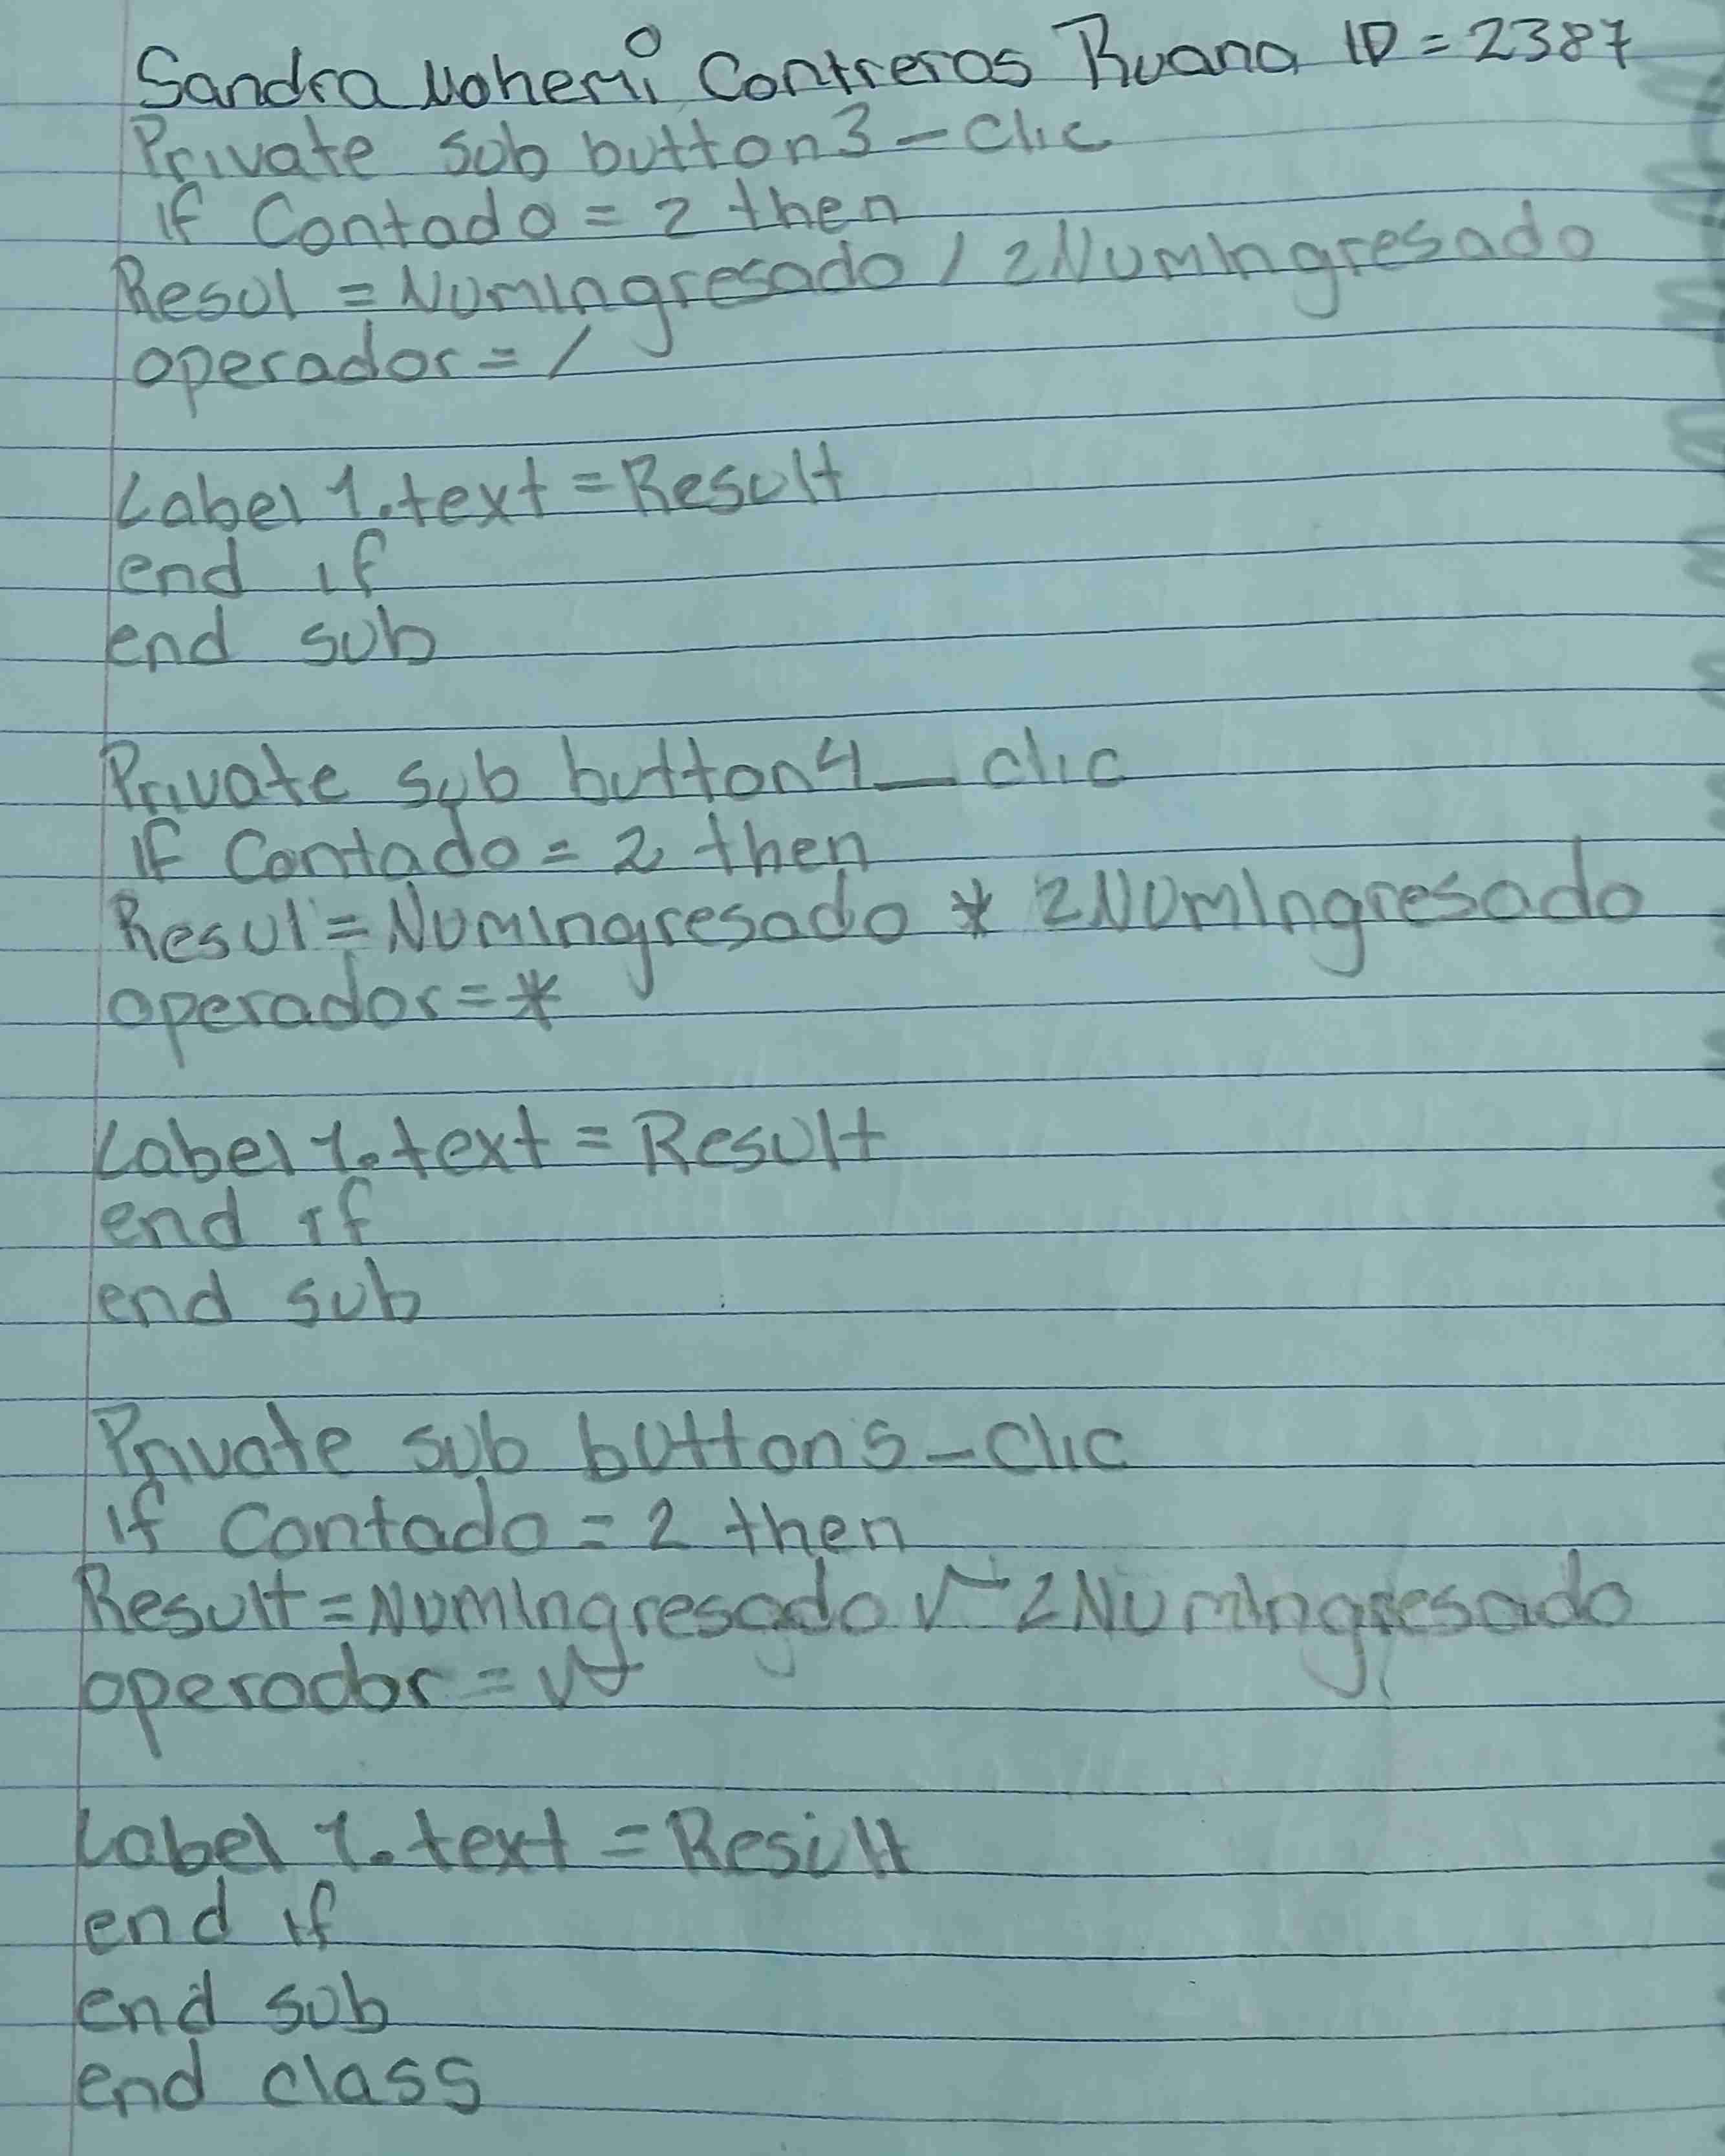 Sandra Nohemi Contreras Ruana ID = 2387
Private sub button3_clic
if Contado = 2 then
Resul = NumIngresado / 2NumIngresado
operador = /
Label 1.text = Result
end if
end sub
Private sub button4_clic
if Contado = 2 then
Resul = NumIngresado * 2NumIngresado
operador = *
Label 1.text = Result
end if
end sub
Private sub button5_clic
if Contado = 2 then
Result = NumIngresado √ 2NumIngresado
operador = √
Label 1.text = Resilt
end if
end sub
end class